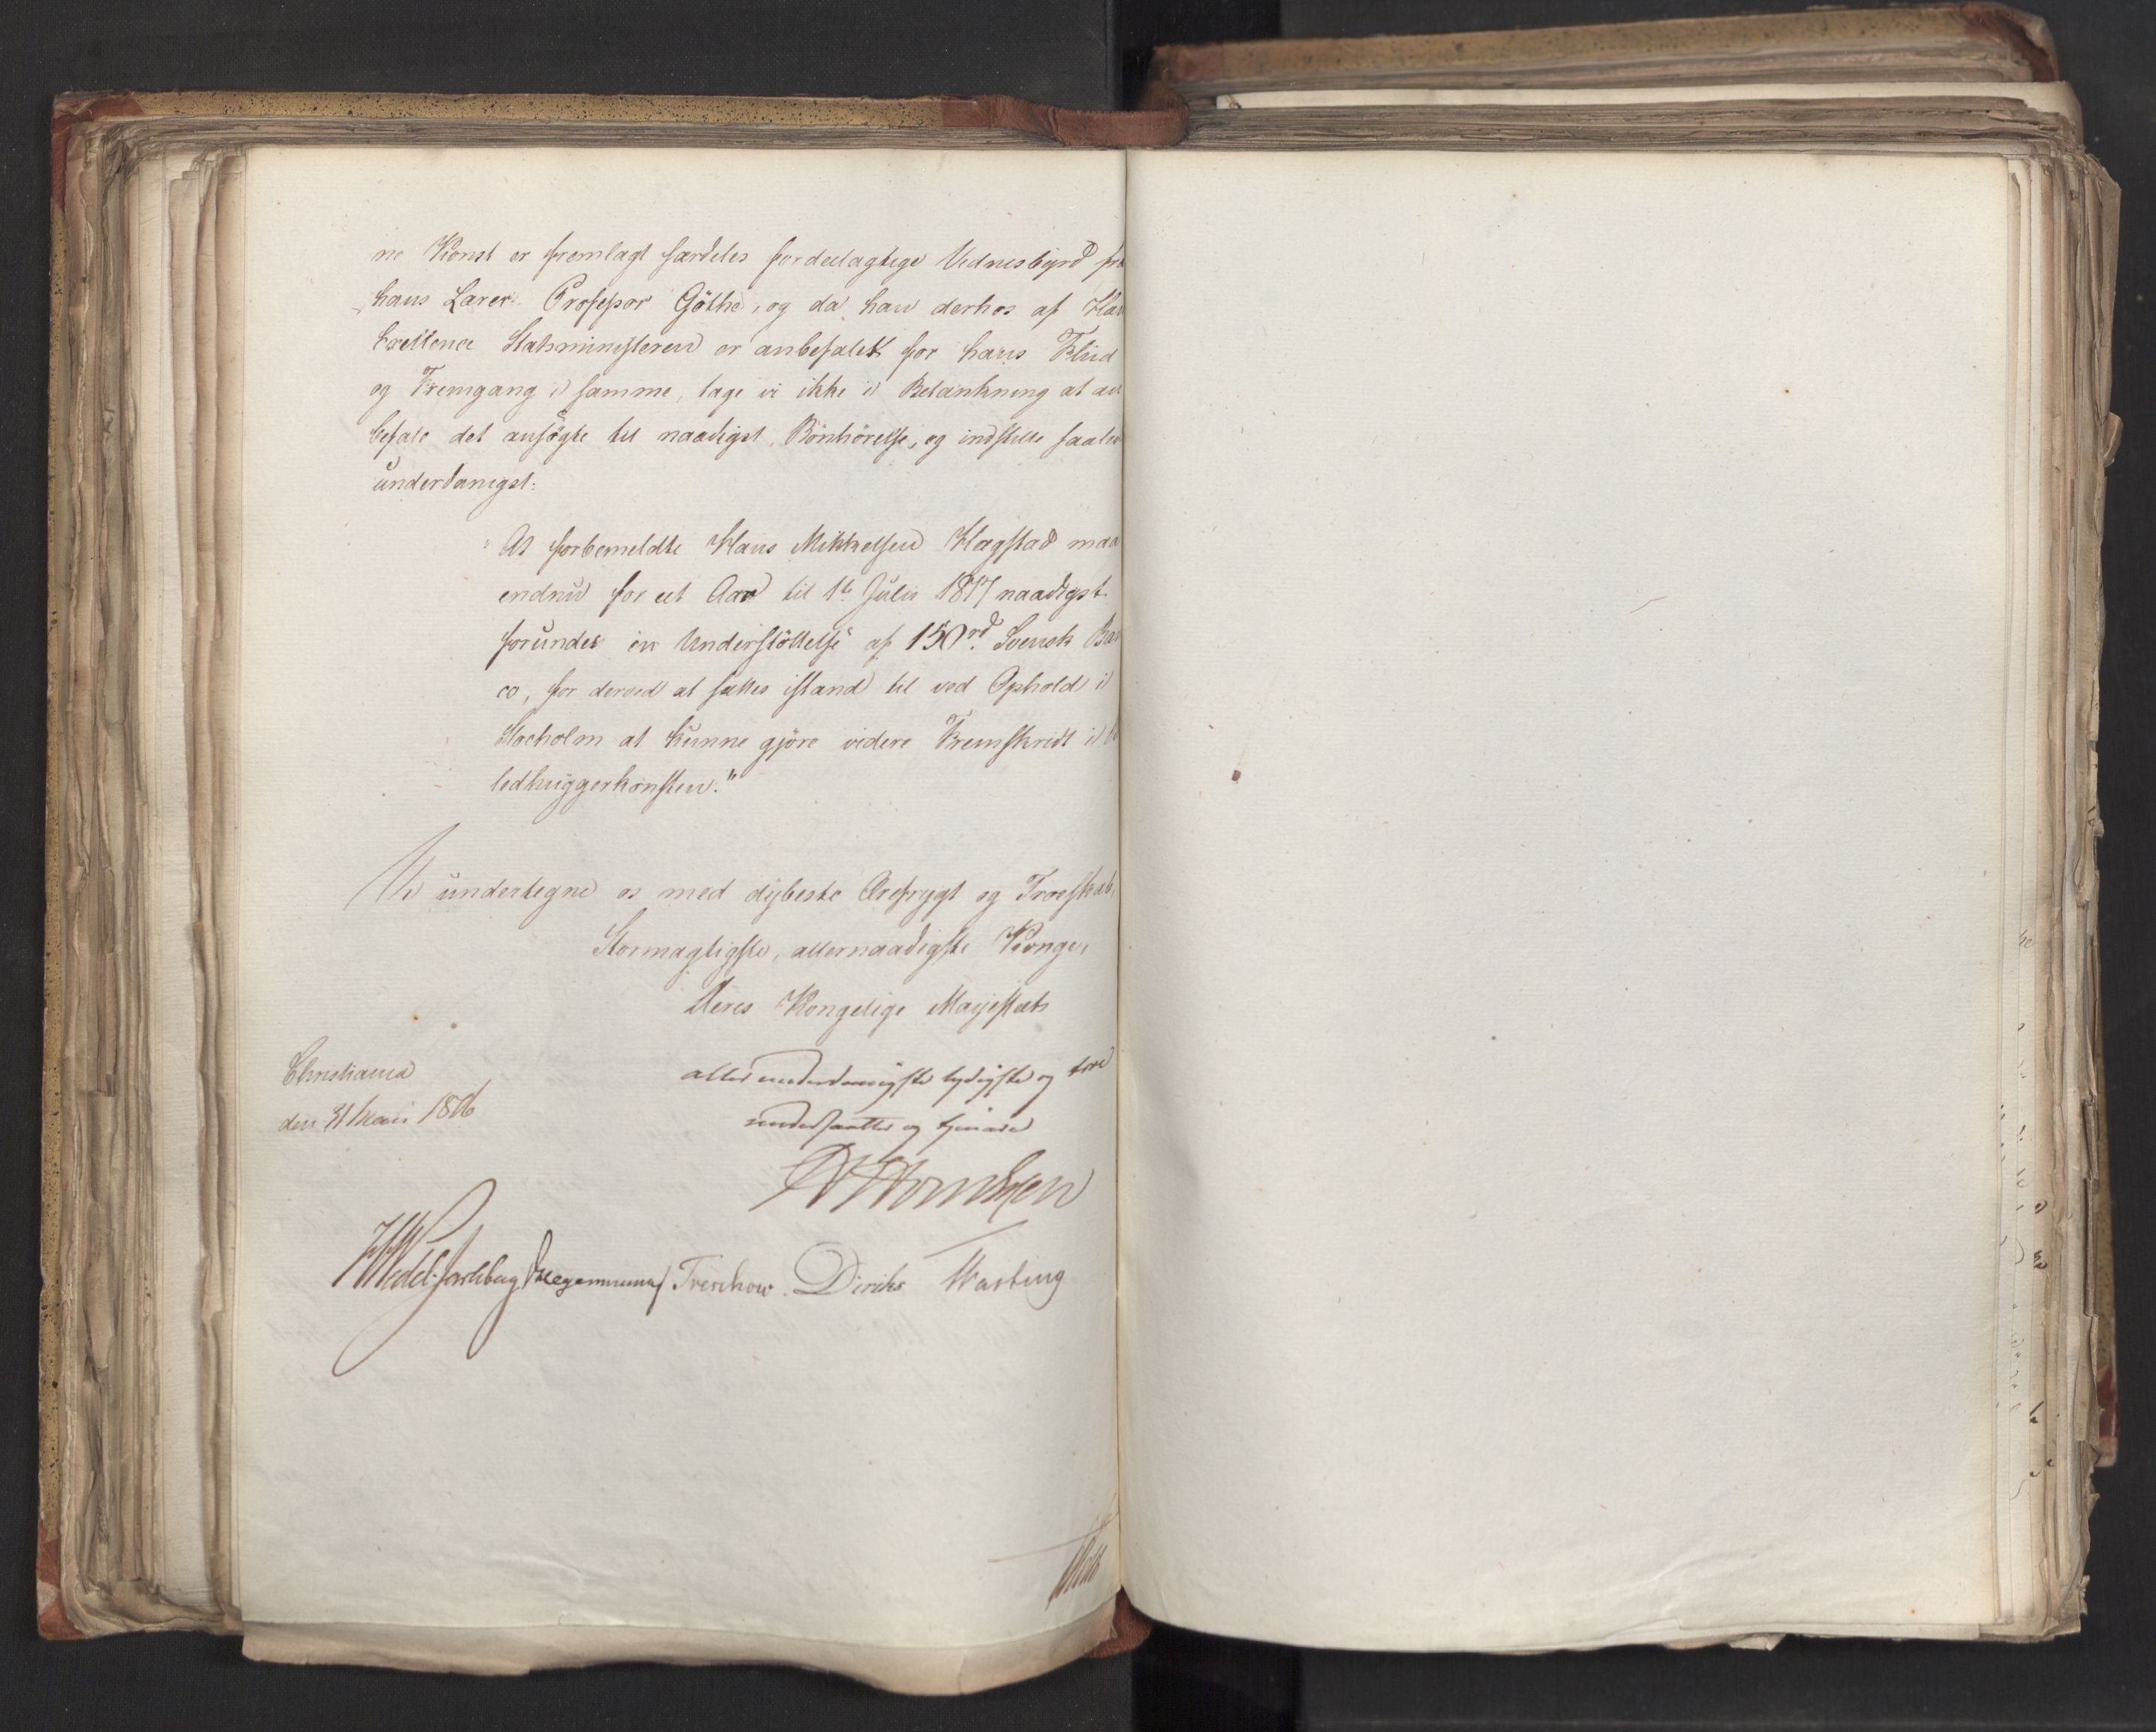 ne Konst er fremlagt særdeles fordeelagtige Vidnesbyrd fra
hans Lærer Professor Göthe, og da han derhos af Hans
Exellence Statsministeren er anbefalet for hans Fliid
og Fremgang i samme, tage vi ikke i Betænkning at an
befale det ansøgte til naadigst Bönhörelse, og indstille saaledes
underdanigst:
"At forbemeldte Hans Mikkelsen Hagstad maa
endnu for eet Aar til 1te Julii 1817 naadigst
forundes en Understöttelse af 150 rd. Svensk Ban
co, for derved at sættes istand til ved Ophold i
Stocholm at kunne gjöre videre Fremskridt i
ledhuggerkonsten."
Vi undertegne os med dybeste Ærefrygt og Troeskab,
Stormægtigste, allernaadigste Konge,
Deres Kongelige Majestæts
Christiania
den 31 Maii 1816
allerunderdanigste lydigste og troe
undersaatter og tjenere
Thomsen
HWedel-Jarlsberg Treschow Diriks Hasting